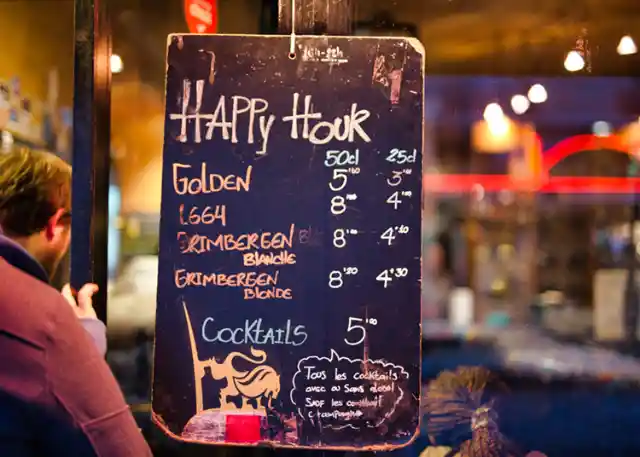 HAPPy HOUR
50cl 25cl
GOLDEN 5'50 3'00
1664 8'00 4'00
GRIMBERGEN BLANCHE 8'00 4'10
GRIMBERGEN BLONDE 8'20 4'30
COCKTAILS 5'00
Tous les cocktails
avec ou sans alcool
SAUF les
champagne